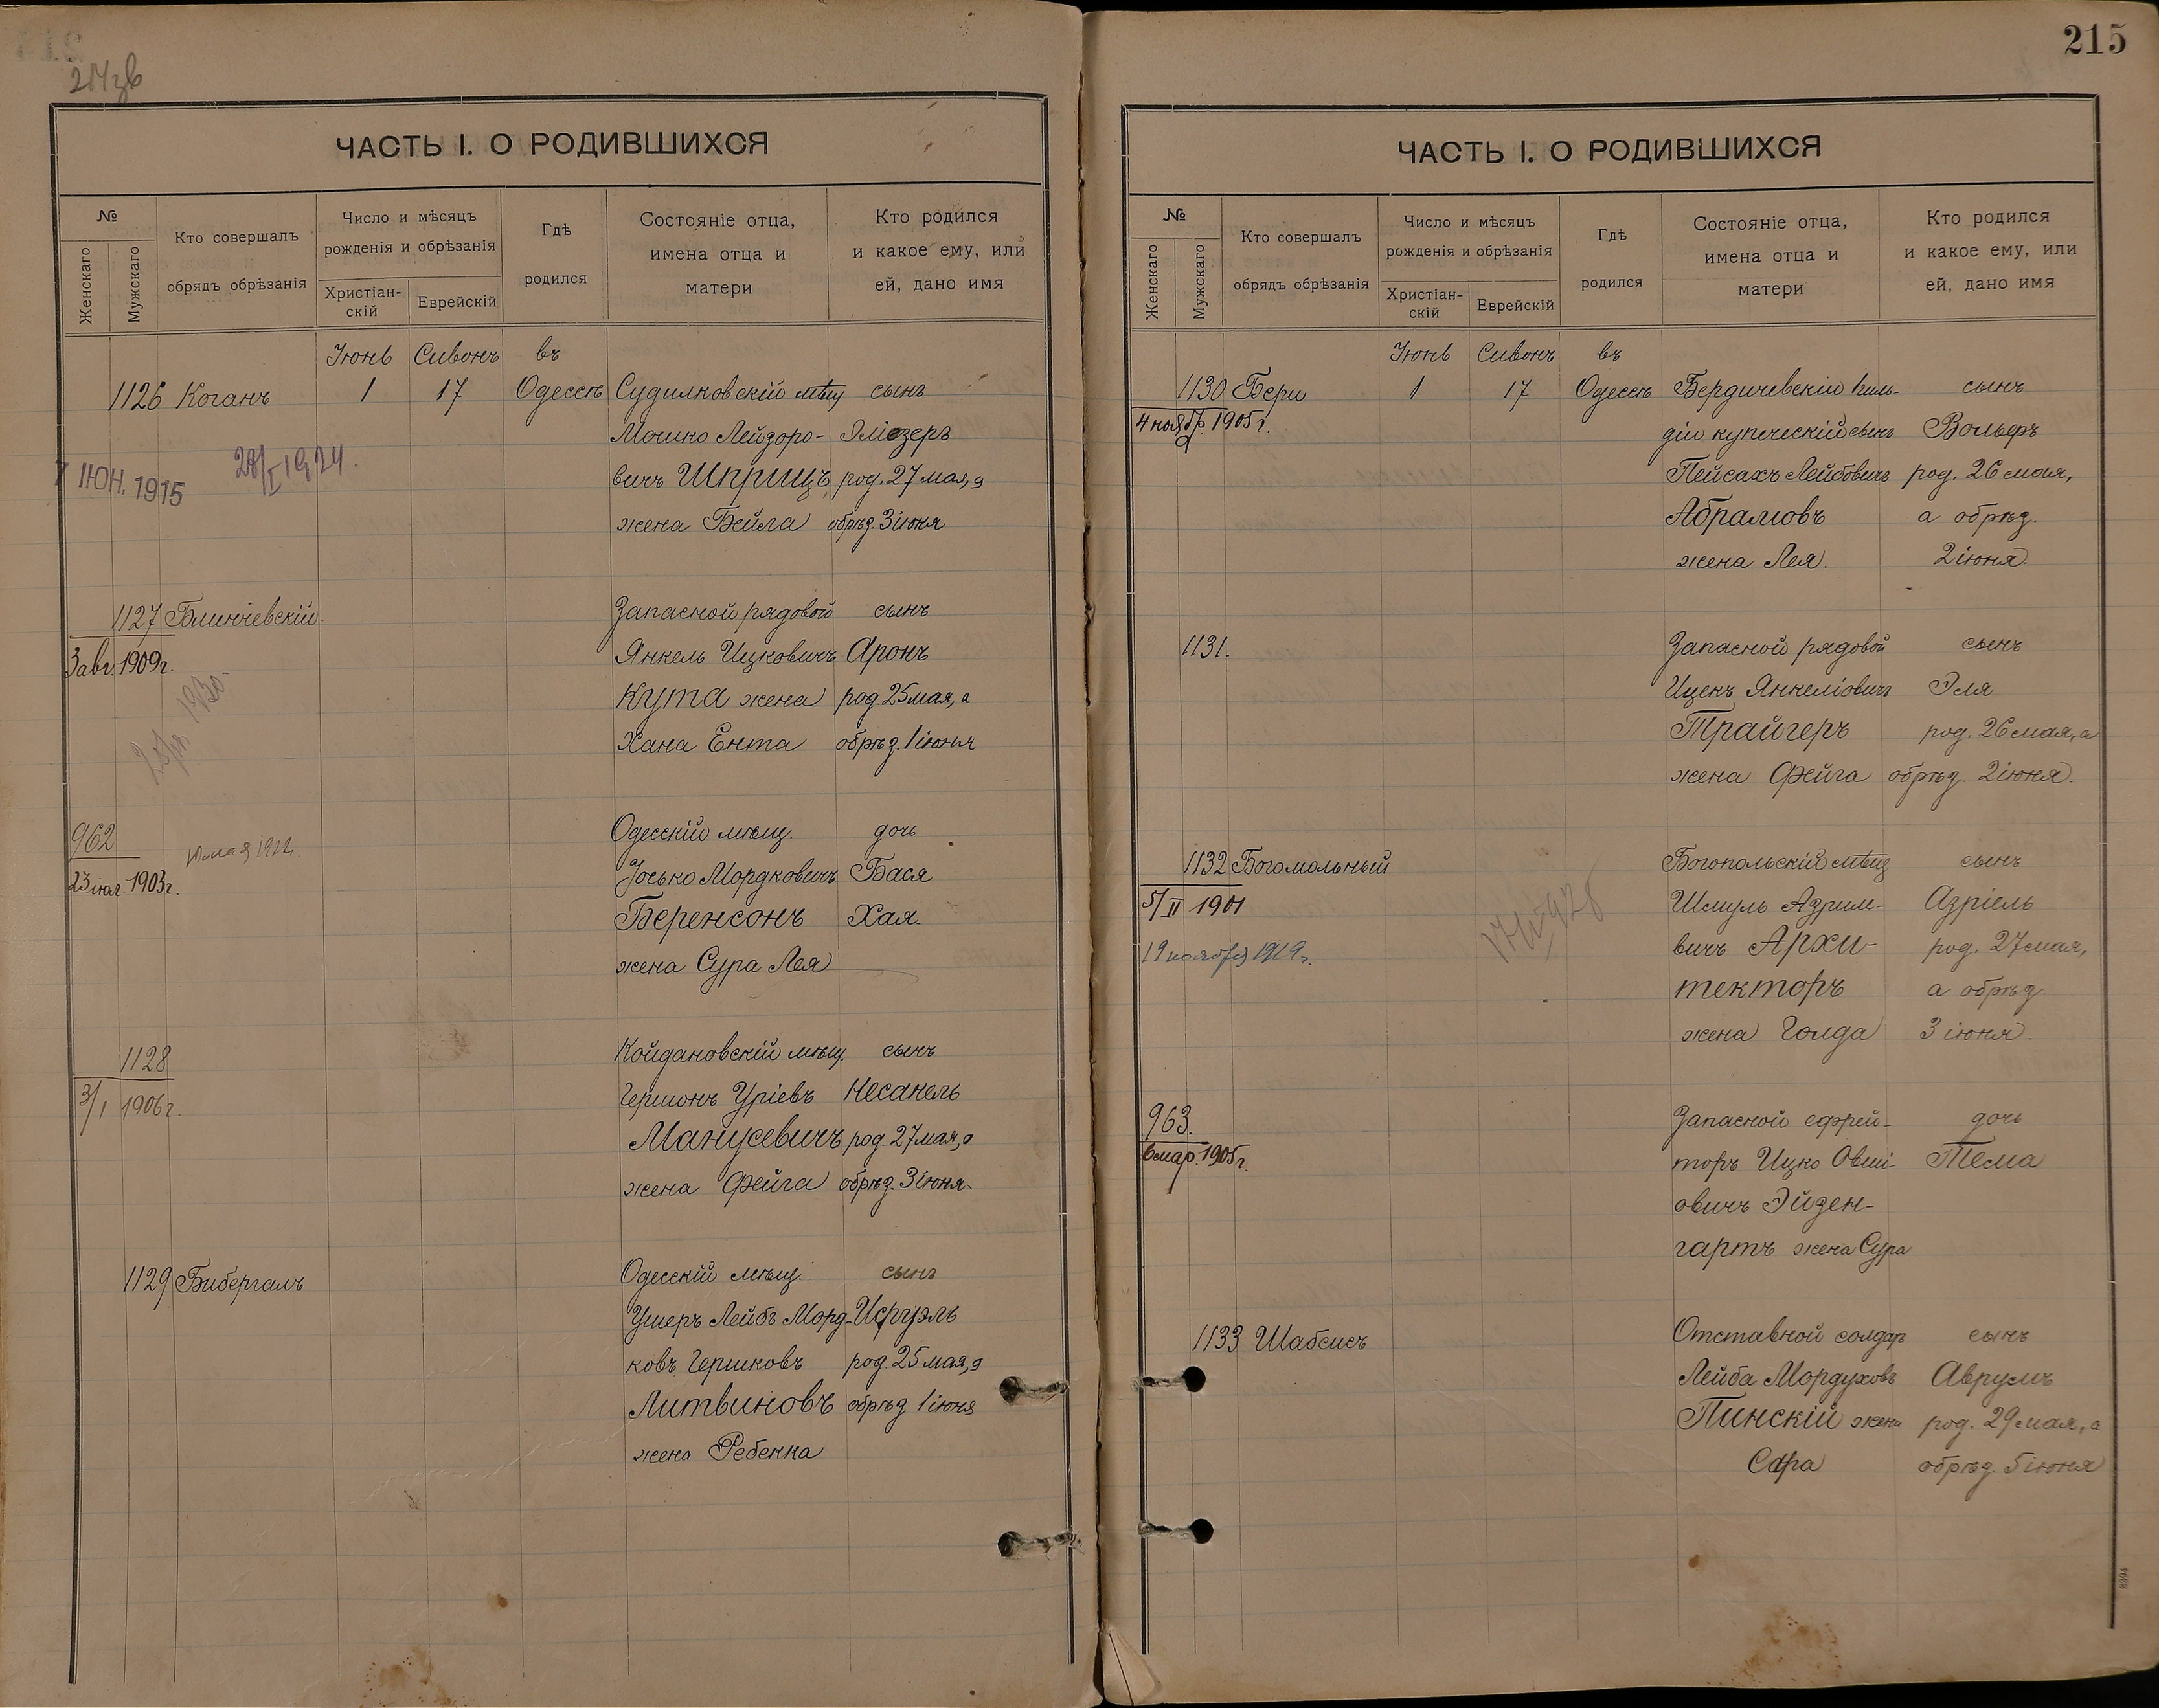 214 зв
ЧАСТЬ I. О РОДИВШИХСЯ
№
Женскаго
Мужскаго
Кто совершалъ
обрядъ обрѣзанія
Число и мѣсяцъ
рожденія и обрѣзанія
Христіан-
скій
Еврейскій
Гдѣ
родился
Состояніе отца,
имена отца и
матери
Кто родился
и какое ему, или
ей, дано имя
Іюнь Сивонъ въ
1126 Коганъ 1 17 Одессѣ Судилковскій мѣщ сынъ
Мошко Лейзоро- Эліезеръ
7 ІЮН. 1915 28/I 1924. вичъ Шприцъ род. 27 мая, а
жена Бейла обрѣз. 3 іюня
1127 Блинчевскій Запасной рядовой сынъ
3 авг. 1909 г. Янкель Ицковичъ Аронъ
1930 Кута жена род. 25 мая, а
Хана Ента обрѣз. 1 іюня
962 Одесскій мѣщ. дочь
23 іюл. 1903 г. мая 1922. Іосько Мордковичъ Бася
Беренсонъ Хая.
жена Сура Лея
1128 Койдановскій мѣщ. сынъ
3/I 1906 г. Гершонъ Уріевъ Несанель
Манусевичъ род. 27 мая, а
жена Фейга обрѣз. 3 іюня.
1129 Бибергалъ Одесскій мѣщ. сынъ
Ушеръ Лейбъ Морд- Исруэль
ковъ Гершковъ род. 25 мая, а
Литвиновъ обрѣз 1 іюня
жена Ребекка
215
ЧАСТЬ I. О РОДИВШИХСЯ
№
Женскаго
Мужскаго
Кто совершалъ
обрядъ обрѣзанія
Число и мѣсяцъ
рожденія и обрѣзанія
Христіан-
скій
Еврейскій
Гдѣ
родился
Состояніе отца,
имена отца и
матери
Кто родился
и какое ему, или
ей, дано имя
Іюнь Сивонъ въ
1130 Бери 1 17 Одессѣ Бердичевскій 1 гиль- сынъ
4 ноябр. 1905 г. діи купеческій сынъ Вольфъ
Пейсахъ Лейбовичъ род. 26 мая,
Абрамовъ а обрѣз.
жена Лея. 2 іюня.
1131. Запасной рядовой сынъ
Ицекъ Янкеліовичъ Эля
Трайгеръ род. 26 мая, а
жена Фейга обрѣз. 2 іюня.
1132 Богомольный Богопольскій мѣщ сынъ
5/II 1901 Шмуль Азрил- Азріель
19 ноября 1919 г. вичъ Архи- род. 27 мая,
текторъ а обрѣз
жена Голда 3 іюня.
963. Запасной ефрей- дочь
6 мар. 1905 г. торъ Ицко Овши- Тема
овичъ Эйзен-
гартъ жена Сура
1133 Шабсисъ Отставной солдат сынъ
Лейба Мордуховъ Аврумъ
Пинскій жена род. 29 мая, а
Сара обрѣз. 5 іюня